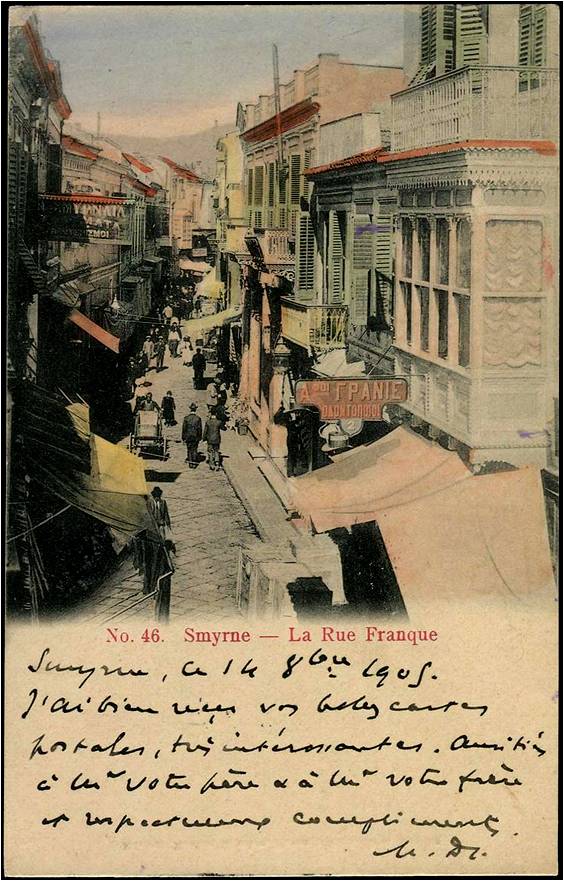 Αφοι ΓΡΑΝΙΣ
ΟΔΟΝΤΟΠΟΙΟΙ
No. 46. Smyrne — La Rue Franque
Smyrne, ce 14 8bre 1905.
J'ai bien reçu vos belles cartes
postales, très intéressantes. Amitiés
à Mr votre père & à Mr votre frère
et respectueux compliments.